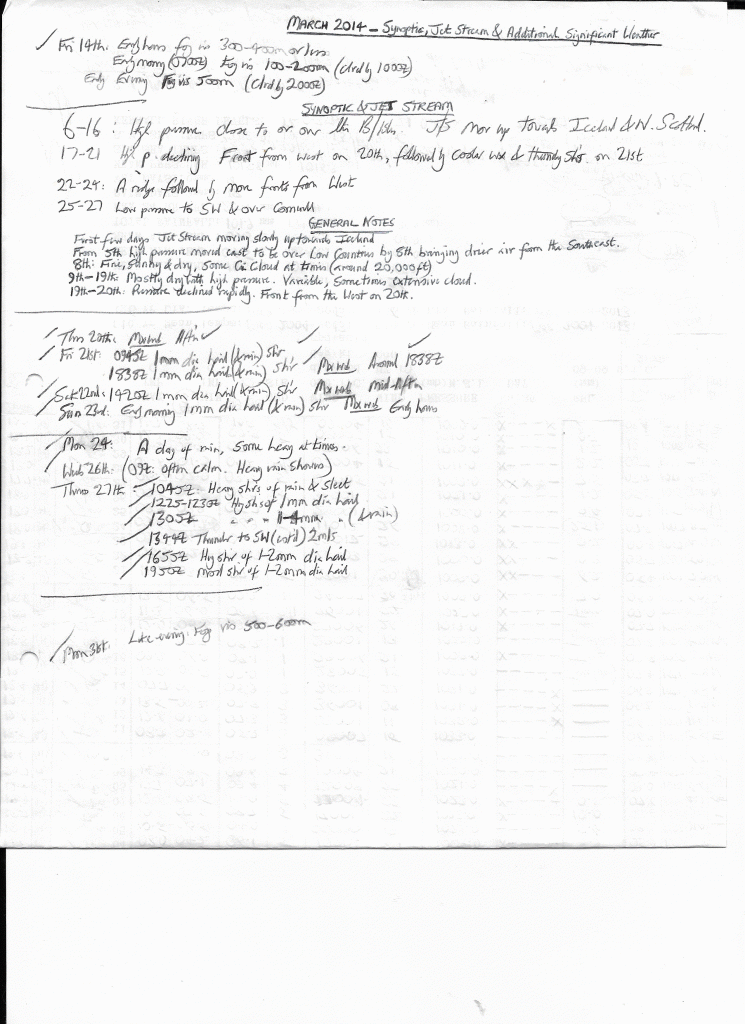 MARCH 2014 – Synoptic, Jet Stream & Additional Significant Weather
Fri 14th: Early hours fog vis 300-400m or less.
Early morning (0700Z) Fog vis 100-200m (clrd by 1000Z)
Early Evening Fog vis 500m (clrd by 2000Z)
SYNOPTIC & JET STREAM
6-16: High pressure close to or over the B/Isles. J/S mov up towards Iceland & N. Scotland.
17-21 High p. declining Front from west on 20th, followed by cooler wx & thundy Sh'rs. on 21st
22-24: A ridge followed by more fronts from West
25-27 Low pressure to SW & over Cornwall
GENERAL NOTES
First few days Jet Stream moving slowly up towards Iceland
From 5th high pressure moved east to be over Low Countries by 8th bringing drier air from the Southeast.
8th: Fine, sunny & dry, some Ci Cloud at times (around 20,000ft)
9th-19th: Mostly dry with high pressure. Variable, Sometimes extensive cloud.
19th-20th: Pressure declined rapidly. Front from the West on 20th.
Thurs 20th: Aftn
Fri 21st: 0945Z 1mm dia hail (& rain) Shr
1838Z 1mm dia hail (& rain) Sh'r Around 1838Z
Sat 22nd: 1420Z 1mm dia hail (& rain) Shr mid-Aftn
Sun 23rd: Early morning 1mm dia hail (& rain) Shr Early hours
Mon 24: A day of rain, Some heavy at times.
Weds 26th: (09Z: often calm. Heavy rain Showers)
Thurs 27th: 1045Z: Heavy sh'rs of rain & sleet
1225-1230Z Hvy shs of 1mm dia hail
1305Z " " " 1-4mm " (& rain)
1344Z Thunder to SW (cont'd) 2mls
1655Z Hvy sh'r of 1-2mm dia hail
1950Z mod shr of 1-2mm dia hail
Mon 31st: Late evening: Fog vis 500-600m